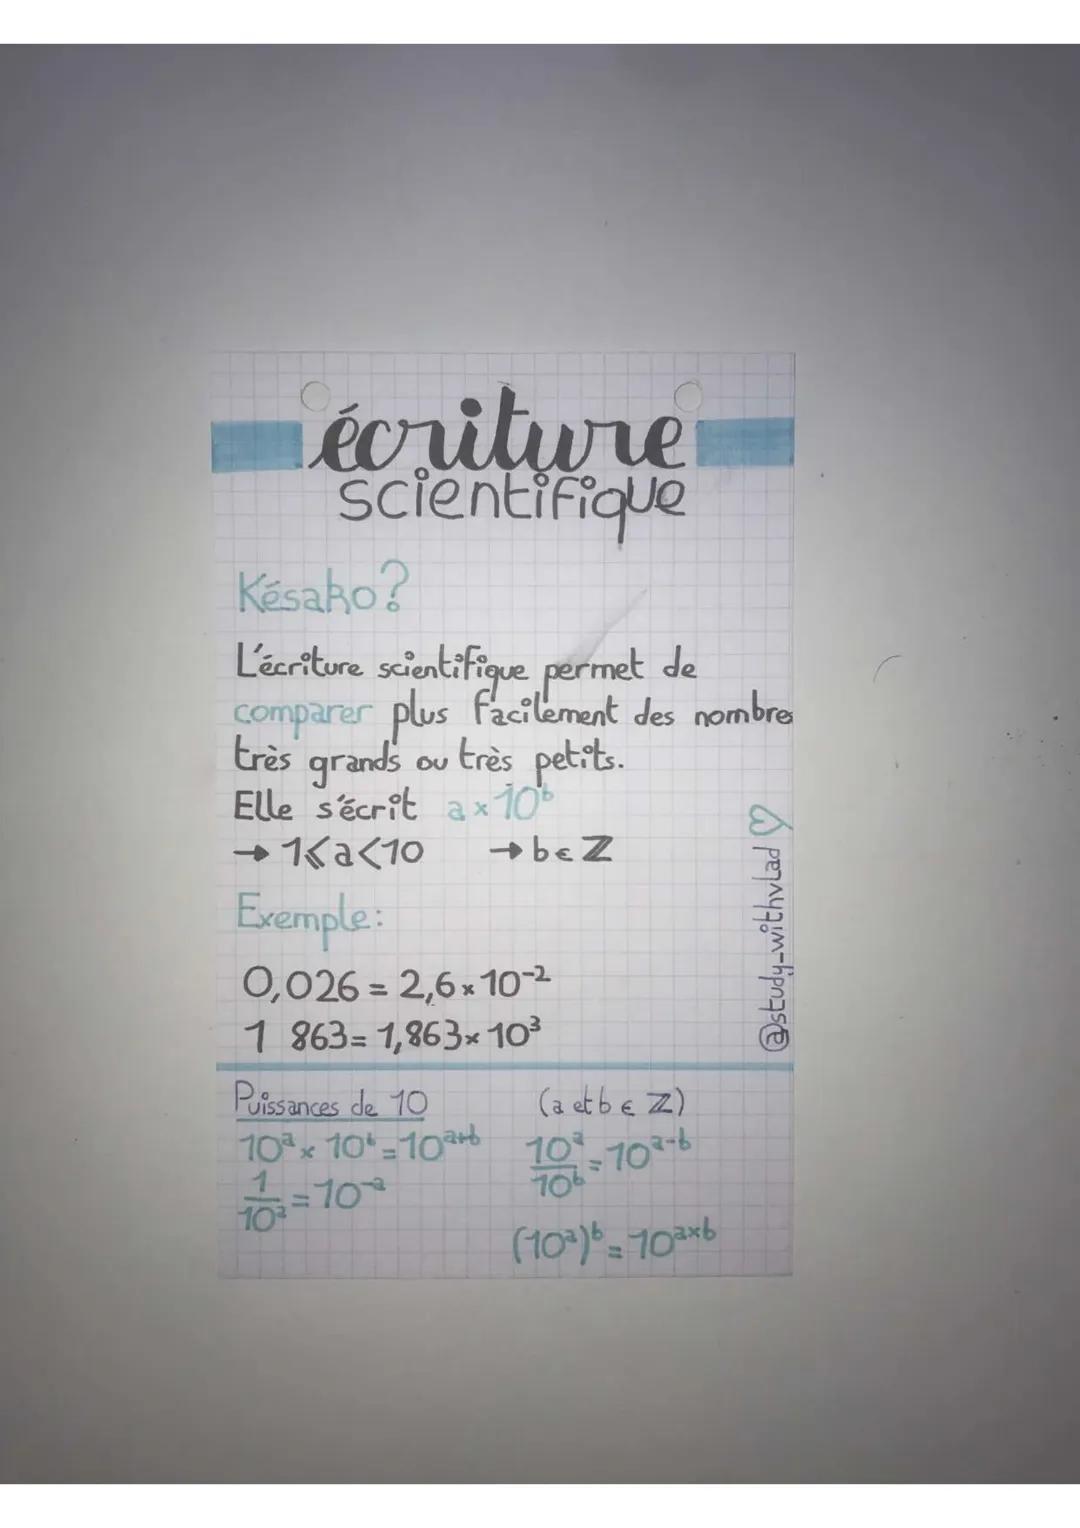 écriture
scientifique
Késako?
L'écriture scientifique permet de
comparer plus facilement des nombres
très grands ou très petits.
Elle s'écrit a × 10ᵇ
→ 1⩽a<10 → b ∈ ℤ
Exemple:
0,026 = 2,6 × 10⁻²
1 863 = 1,863 × 10³
@study_withvlad ♡
Puissances de 10 (a et b ∈ ℤ)
10ᵃ × 10ᵇ = 10ᵃ⁺ᵇ 10ᵃ/10ᵇ = 10ᵃ⁻ᵇ
1/10ᵃ = 10⁻ᵃ
(10ᵃ)ᵇ = 10ᵃˣᵇ